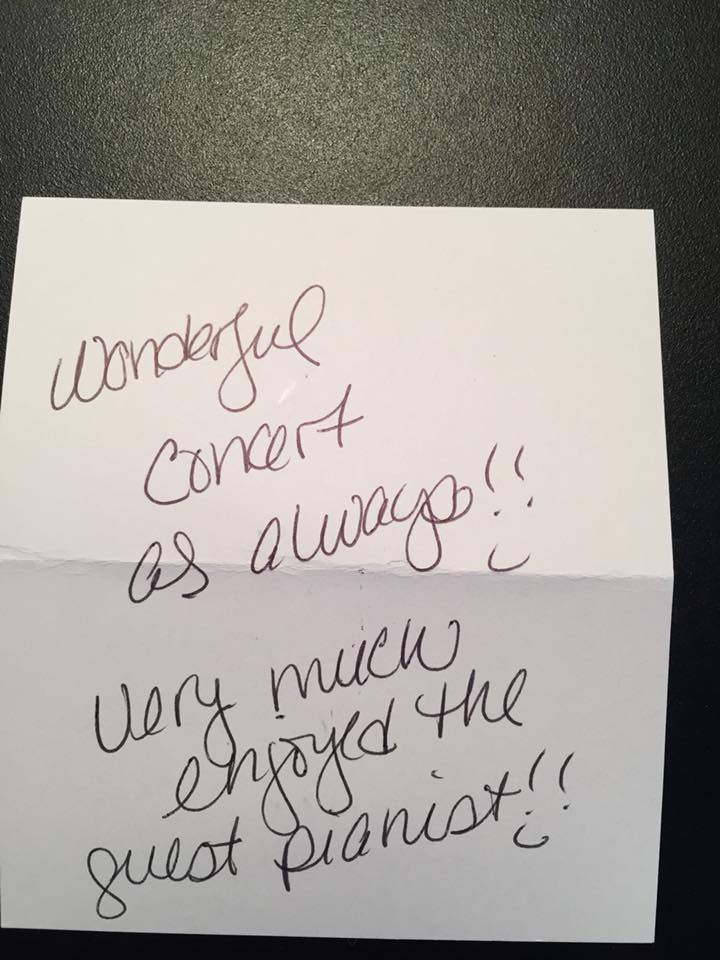 Wonderful
Concert
as always!!
Very much
enjoyed the
guest pianist!!